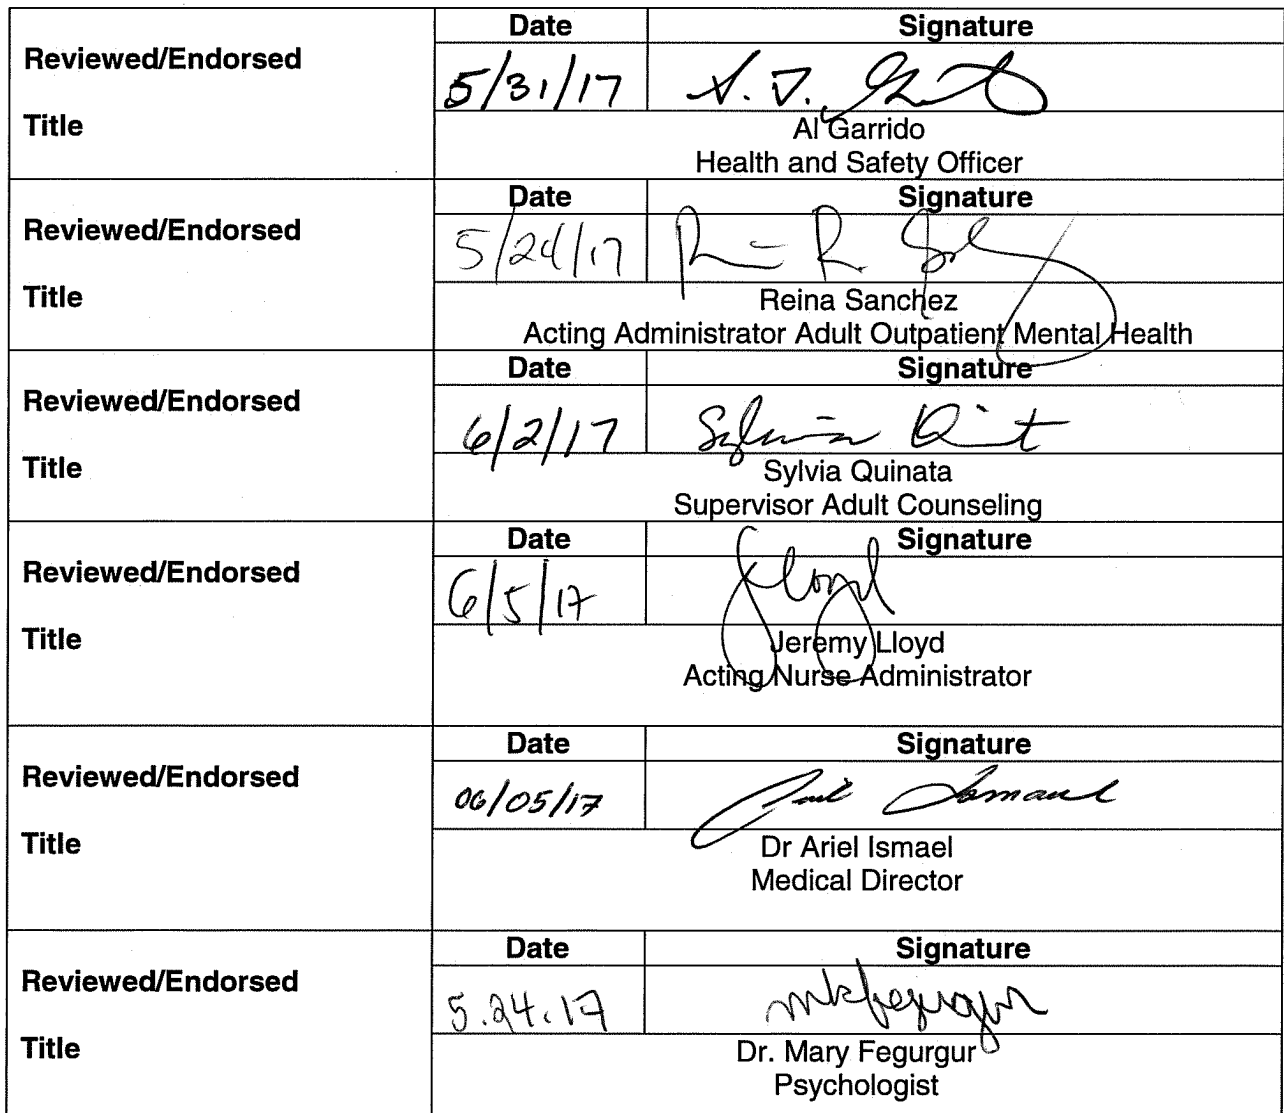 Date Signature
Reviewed/Endorsed
5/31/17
Title
Al Garrido
Health and Safety Officer
Date Signature
Reviewed/Endorsed
5/24/17
Title
Reina Sanchez
Acting Administrator Adult Outpatient Mental Health
Date Signature
Reviewed/Endorsed
6/2/17
Title
Sylvia Quinata
Supervisor Adult Counseling
Date Signature
Reviewed/Endorsed
6/5/17 JLloyd
Title
Jeremy Lloyd
Acting Nurse Administrator
Date Signature
Reviewed/Endorsed
06/05/17
Title
Dr Ariel Ismael
Medical Director
Date Signature
Reviewed/Endorsed
5.24.17 mkfegurgur
Title
Dr. Mary Fegurgur
Psychologist